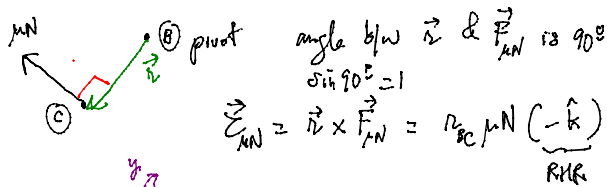 μN
Ⓑ pivot
r⃗
Ⓒ
y
angle b/w r⃗ & F⃗_μN is 90°
sin90° = 1
τ⃗_μN = r⃗ × F⃗_μN = r_BC μN (-k̂)
RHR